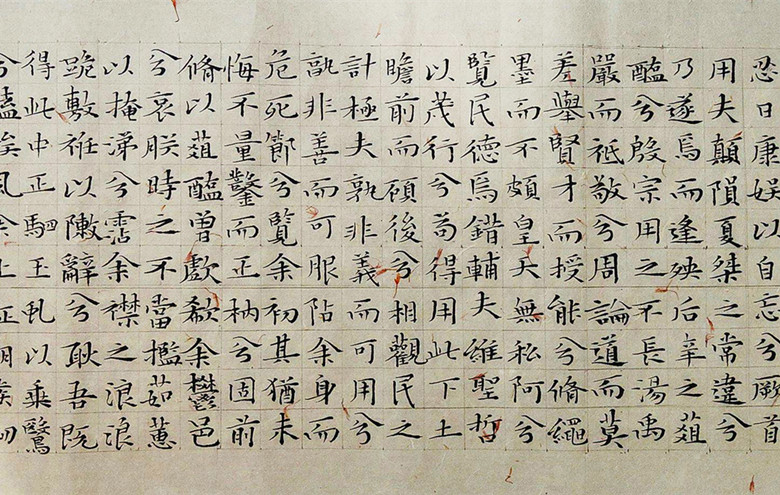 忍日康娱以自忘兮厥首
用夫顛隕夏桀之常違兮
乃遂焉而逢殃后辛之葅
醢兮殷宗用之不長湯禹
嚴而祗敬兮周論道而莫
差舉賢才而授能兮脩繩
墨而不頗皇天無私阿兮
覽民德焉錯輔夫維聖哲
以茂行兮苟得用此下土
瞻前而顧後兮相觀民之
計極夫孰非義而可用兮
孰非善而可服阽余身而
危死節兮覽余初其猶未
悔不量鑿而正枘兮固前
脩以葅醢曾歔欷余鬱邑
兮哀朕時之不當檻茹蕙
以掩涕兮霑余襟之浪浪
跪敷衽以敶辭兮耿吾既
得此中正駟玉虬以乗鷖
兮溘埃風余上征朝